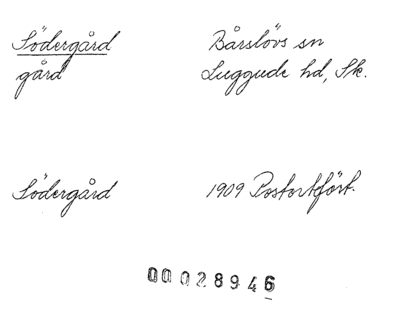 Södergård Bårslövs sn
gård Luggude hd, Sk.
Södergård 1909 Postortfört.
00 028946